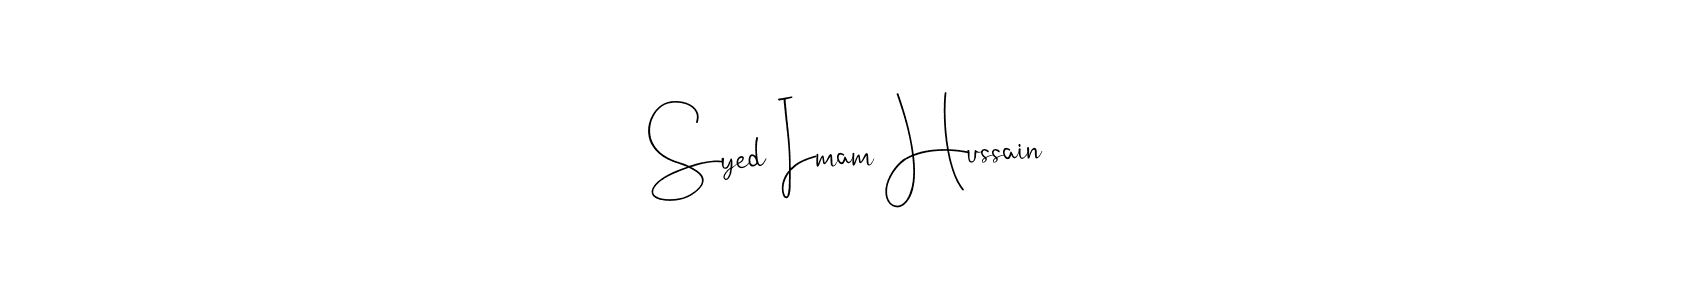 Syed Imam Hussain